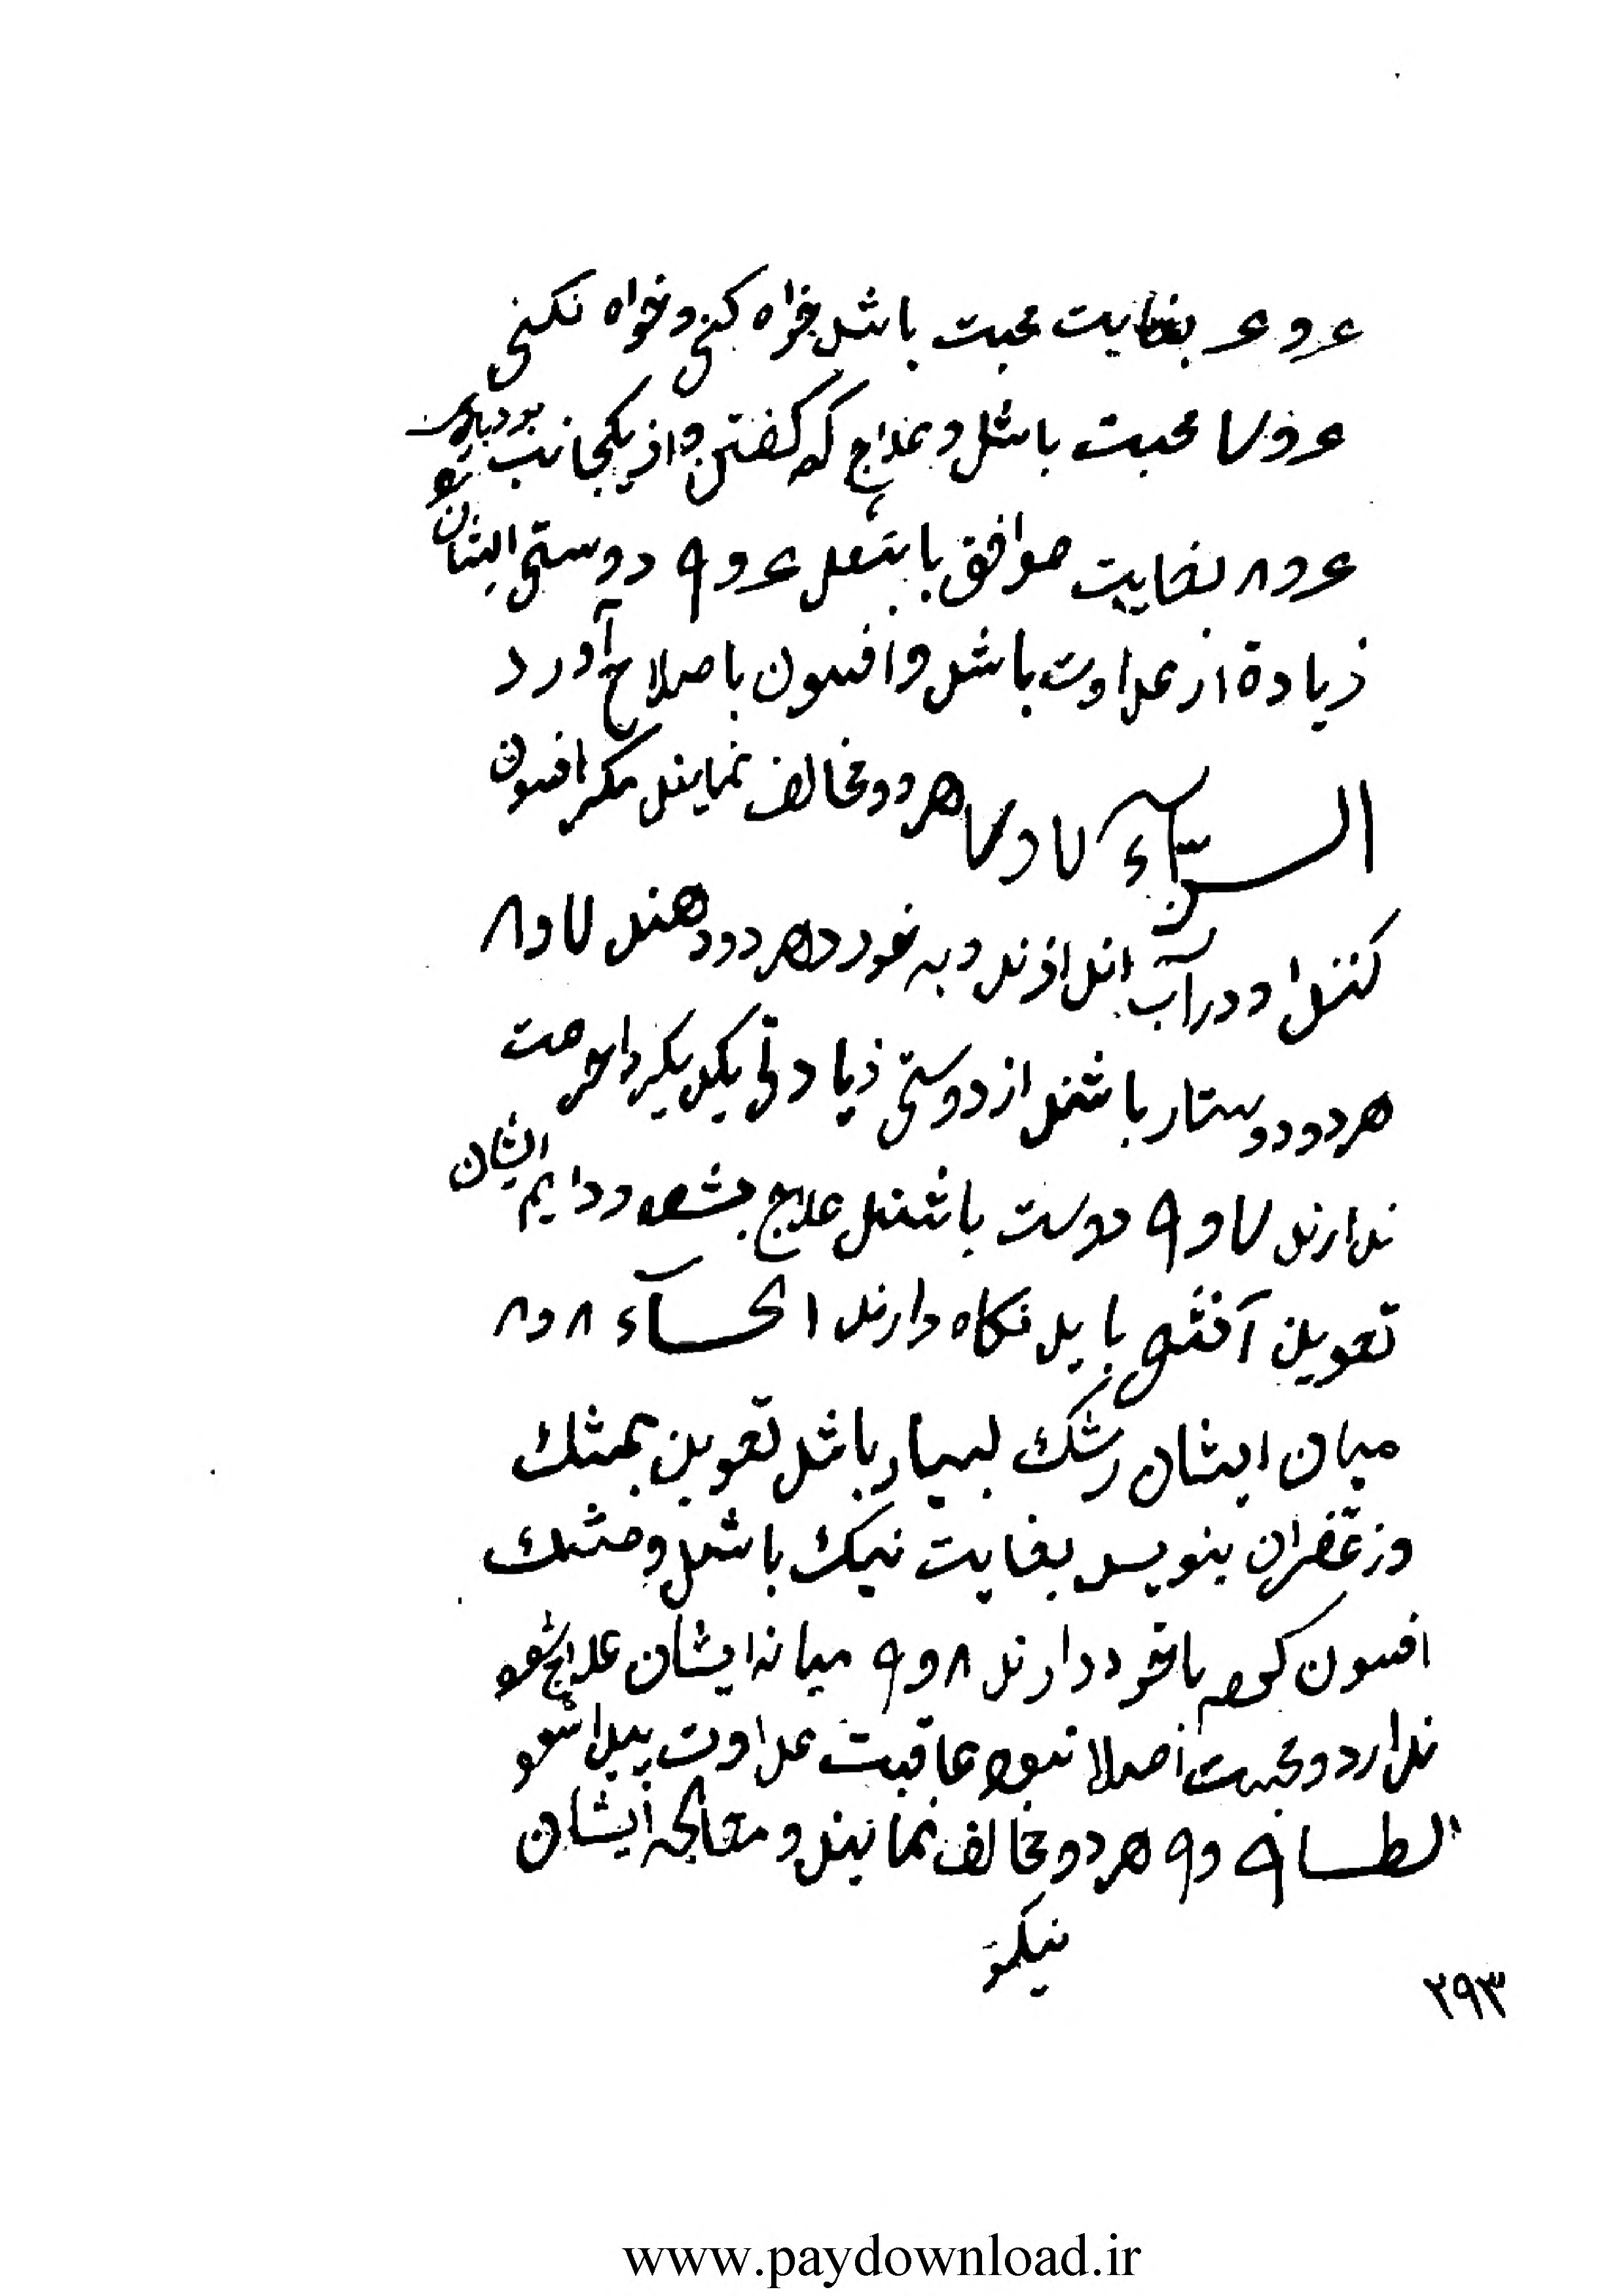 ۶ و ۶ بغایت محبت باشد خواه کنی و خواه نکنی
۶ و ۷ محبت باشد و علاج که گفتن و از یکجانب بود
۶ و ۸ بغایت موافق باشد ۶ و ۹ دوستی ایشان
زیادة از عداوت باشد و افسون باصلاح آورد
الزآء ۷ و ۷ هر دو مخالف نمایند مکر افسون
کنند و در آب اندازند و به خورد هر دو دهند ۷ و ۸
هر دو دوستار باشند از دوستی زیادتی یکدیکر را حرمت
ندارند ۷ و ۹ دوست باشند علاج و دایم ایشان
تعویذ آتشی باید نکاه دارند الحآء ۸ و ۸
میان ایشان رشک بسیار باشد تعویذ بمشک
و زعفران بنویسد بغایت نیک باشد و مشک
افسون کرده با خود دارند ۸ و ۹ میانه ایشان علاج شو
ندارد و محبت اصلا نبود عاقبت عداوت پیدا شو
الطا ۹ و ۹ هر دو مخالف نمایند و معالجه ایشان
نیکو
۲۹۳
www.paydownload.ir